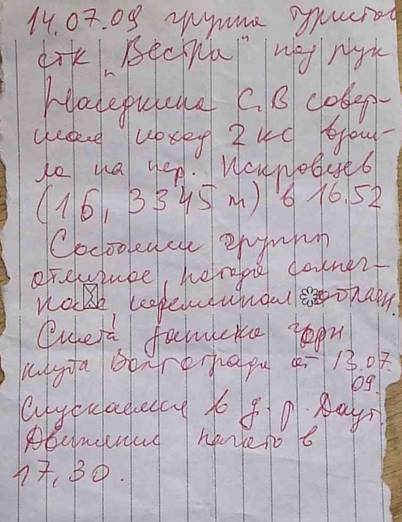 14.07.09 группа туристов
стк "Вестра" под рук
Наседкина С.В совер-
шая поход 2 кс взош-
ла на пер. Искровцев
(1Б, 3345 м) в 16.52
Состояние группы
отличное, погода солнеч-
ная, переменная облачн.
Снята записка горн
клуба Волгограда от 13.07.
09.
Спускаемся в д.р. Даут.
Движение начато в
17,30.